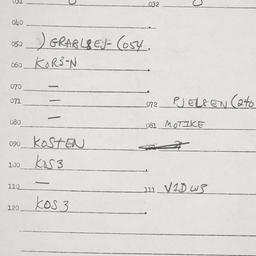 032
040
050 ) GRABLBEJ- (054.
060 KORS-N
070 —
071 — 072 PJELSEN (240
080 — 081 MOTIKE
090 KOSTEN
100 KOS3
110 — 111 VIDUS
120 KOS 3